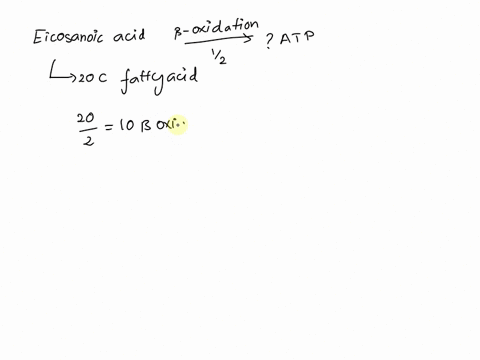 Eicosanoic acid β-oxidation ? ATP
1/2
↳ 20 C fatty acid
20/2 = 10 B oxi